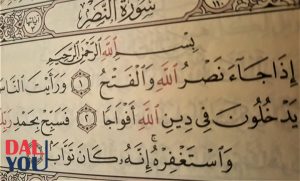 سُورَةُ النَّصْرِ
بِسْمِ اللَّهِ الرَّحْمَٰنِ الرَّحِيمِ
إِذَا جَآءَ نَصْرُ اللَّهِ وَالْفَتْحُ ١ وَرَأَيْتَ النَّاسَ
يَدْخُلُونَ فِي دِينِ اللَّهِ أَفْوَاجًا ٢ فَسَبِّحْ بِحَمْدِ
وَاسْتَغْفِرْهُ إِنَّهُ كَانَ تَوَّابًا
DAL
YOU